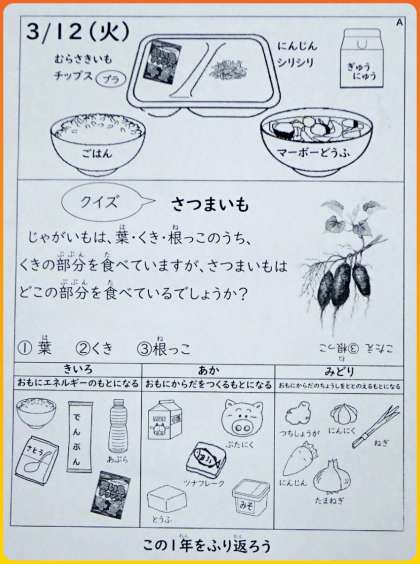 A
3/12(火)
むらさきいも
チップス
プラ
にんじん
シリシリ
ぎゅう
にゅう
ごはん
マーボーどうふ
クイズ
さつまいも
じゃがいもは、葉・くき・根っこのうち、
くきの部分を食べていますが、さつまいもは
どこの部分を食べているでしょうか?
① 葉 ②くき ③根っこ
こたえ ③根っこ
きいろ
おもにエネルギーのもとになる
さとう
でんぷん
あぶら
あか
おもにからだをつくるもとになる
ぶたにく
ツナフレーク
とうふ
みそ
みどり
おもにからだのちょうしをととのえるもとになる
つちしょうが
にんにく
ねぎ
にんじん
たまねぎ
この1年をふり返ろう